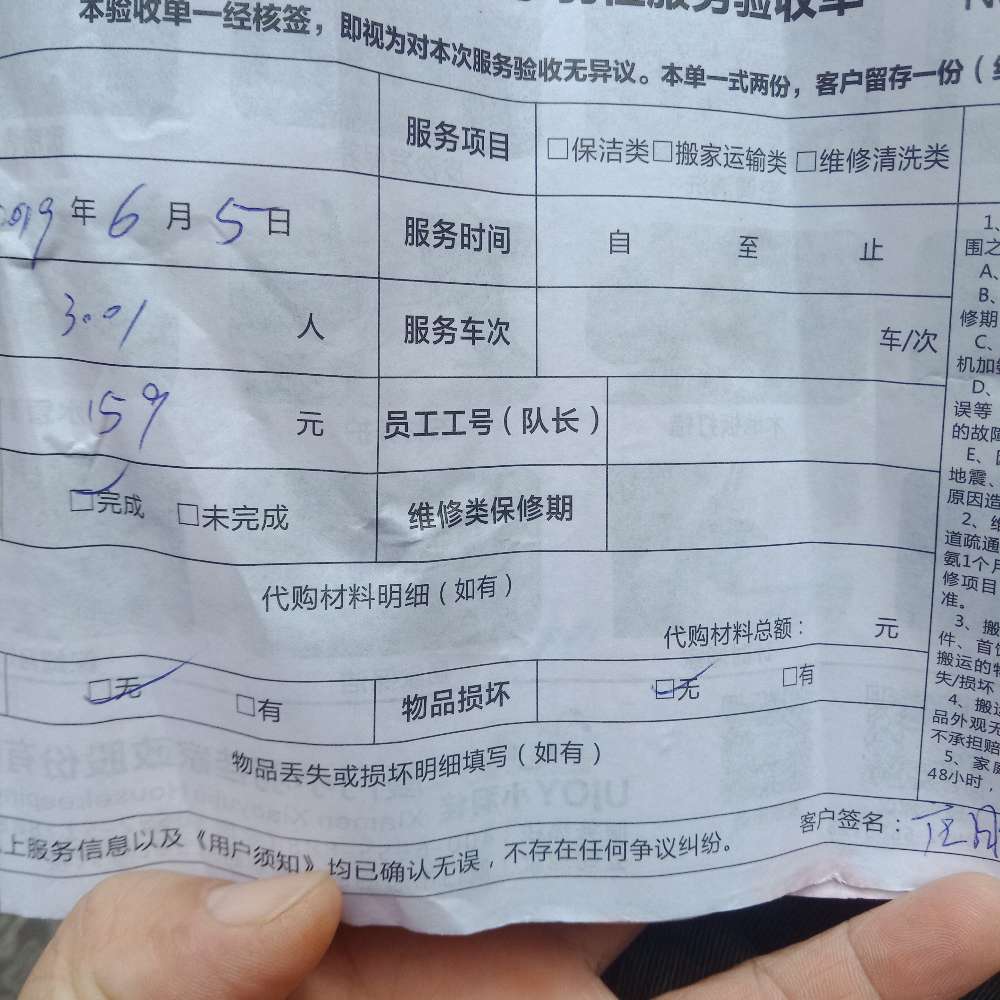 服务验收单
本验收单一经核签，即视为对本次服务验收无异议。本单一式两份，客户留存一份（
服务项目 □保洁类□搬家运输类□维修清洗类
2019年6月5日 服务时间 自 至 止
3.01 人 服务车次 车/次
159 元 员工工号（队长）
□完成 □未完成 维修类保修期
代购材料明细（如有）
代购材料总额： 元
□无 □有 物品损坏 □无 □有
物品丢失或损坏明细填写（如有）
上服务信息以及《用户须知》均已确认无误，不存在任何争议纠纷。
客户签名：
1、
围之
A、
B、
修期
C、
机加
D、
误等
的故障
E、
地震、
原因造
2、维
道疏通
氨1个月
修项目
准。
3、搬
件、首
搬运的物
失/损坏
4、搬运
品外观无
不承担赔
5、家庭
48小时，